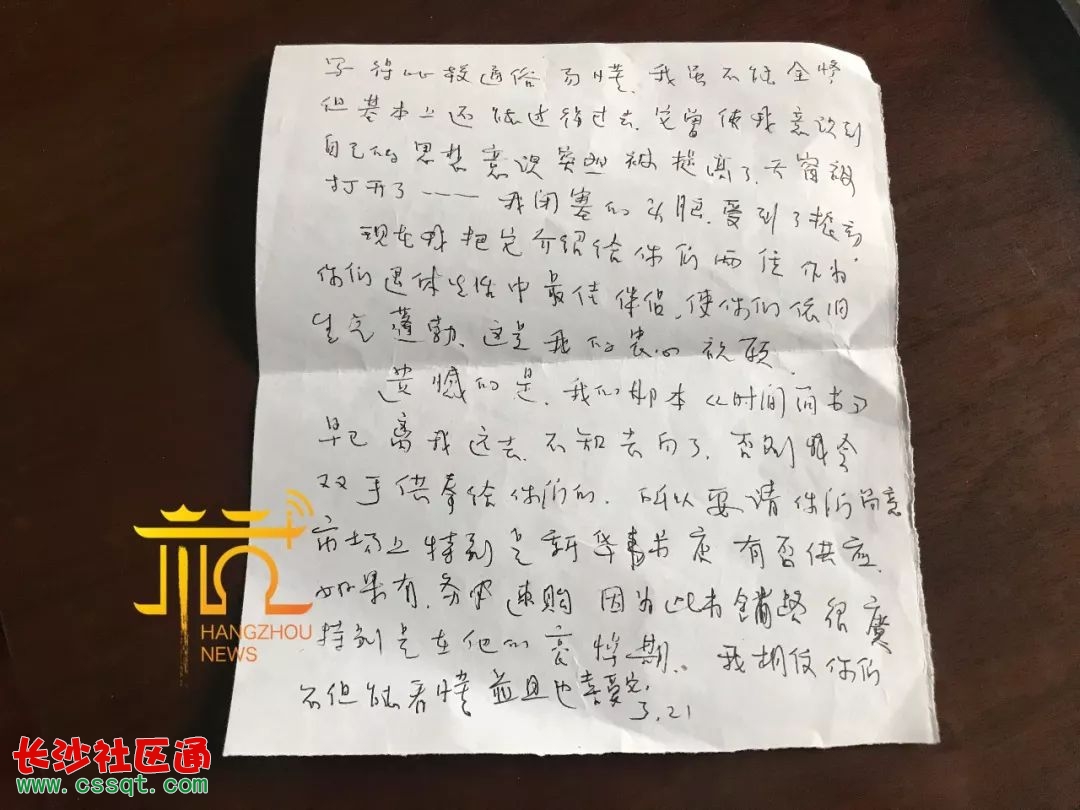 写得比较通俗易懂,我虽不能全悟
但基本上还能过得过去,它曾使我意识到
自己的思想意识突然被提高了,天窗被
打开了——我闭塞的头脑,受到了振动,
现在我把它介绍给你们两位作为
你们退休生活中最佳伴侣,使你们依旧
生气蓬勃、这是我的衷心祝愿.
遗憾的是,我们那本《时间简书》
早已离我远去,不知去向了,否则我会
双手供奉给你们的,所以要请你们留意
市场上特别是新华书店有否供应.
如果有,务必速购 因为此书销路很廣
特别是在他们哀悼期、我相信你们
不但能看懂並且也喜爱它,
3.21
杭
HANGZHOU
NEWS
长沙社区通
www.cssqt.com